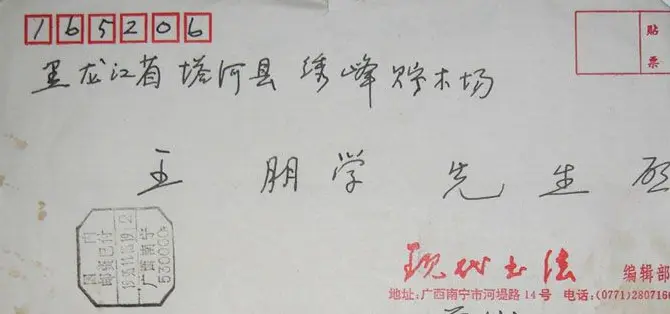 165206
贴
票
黑龙江省 塔河县 绣峰贮木场
王 朋学 先生 启
国内
邮资已付
广西南宁
530000
现代书法 编辑部
地址:广西南宁市河堤路14号 电话:(0771)2807166